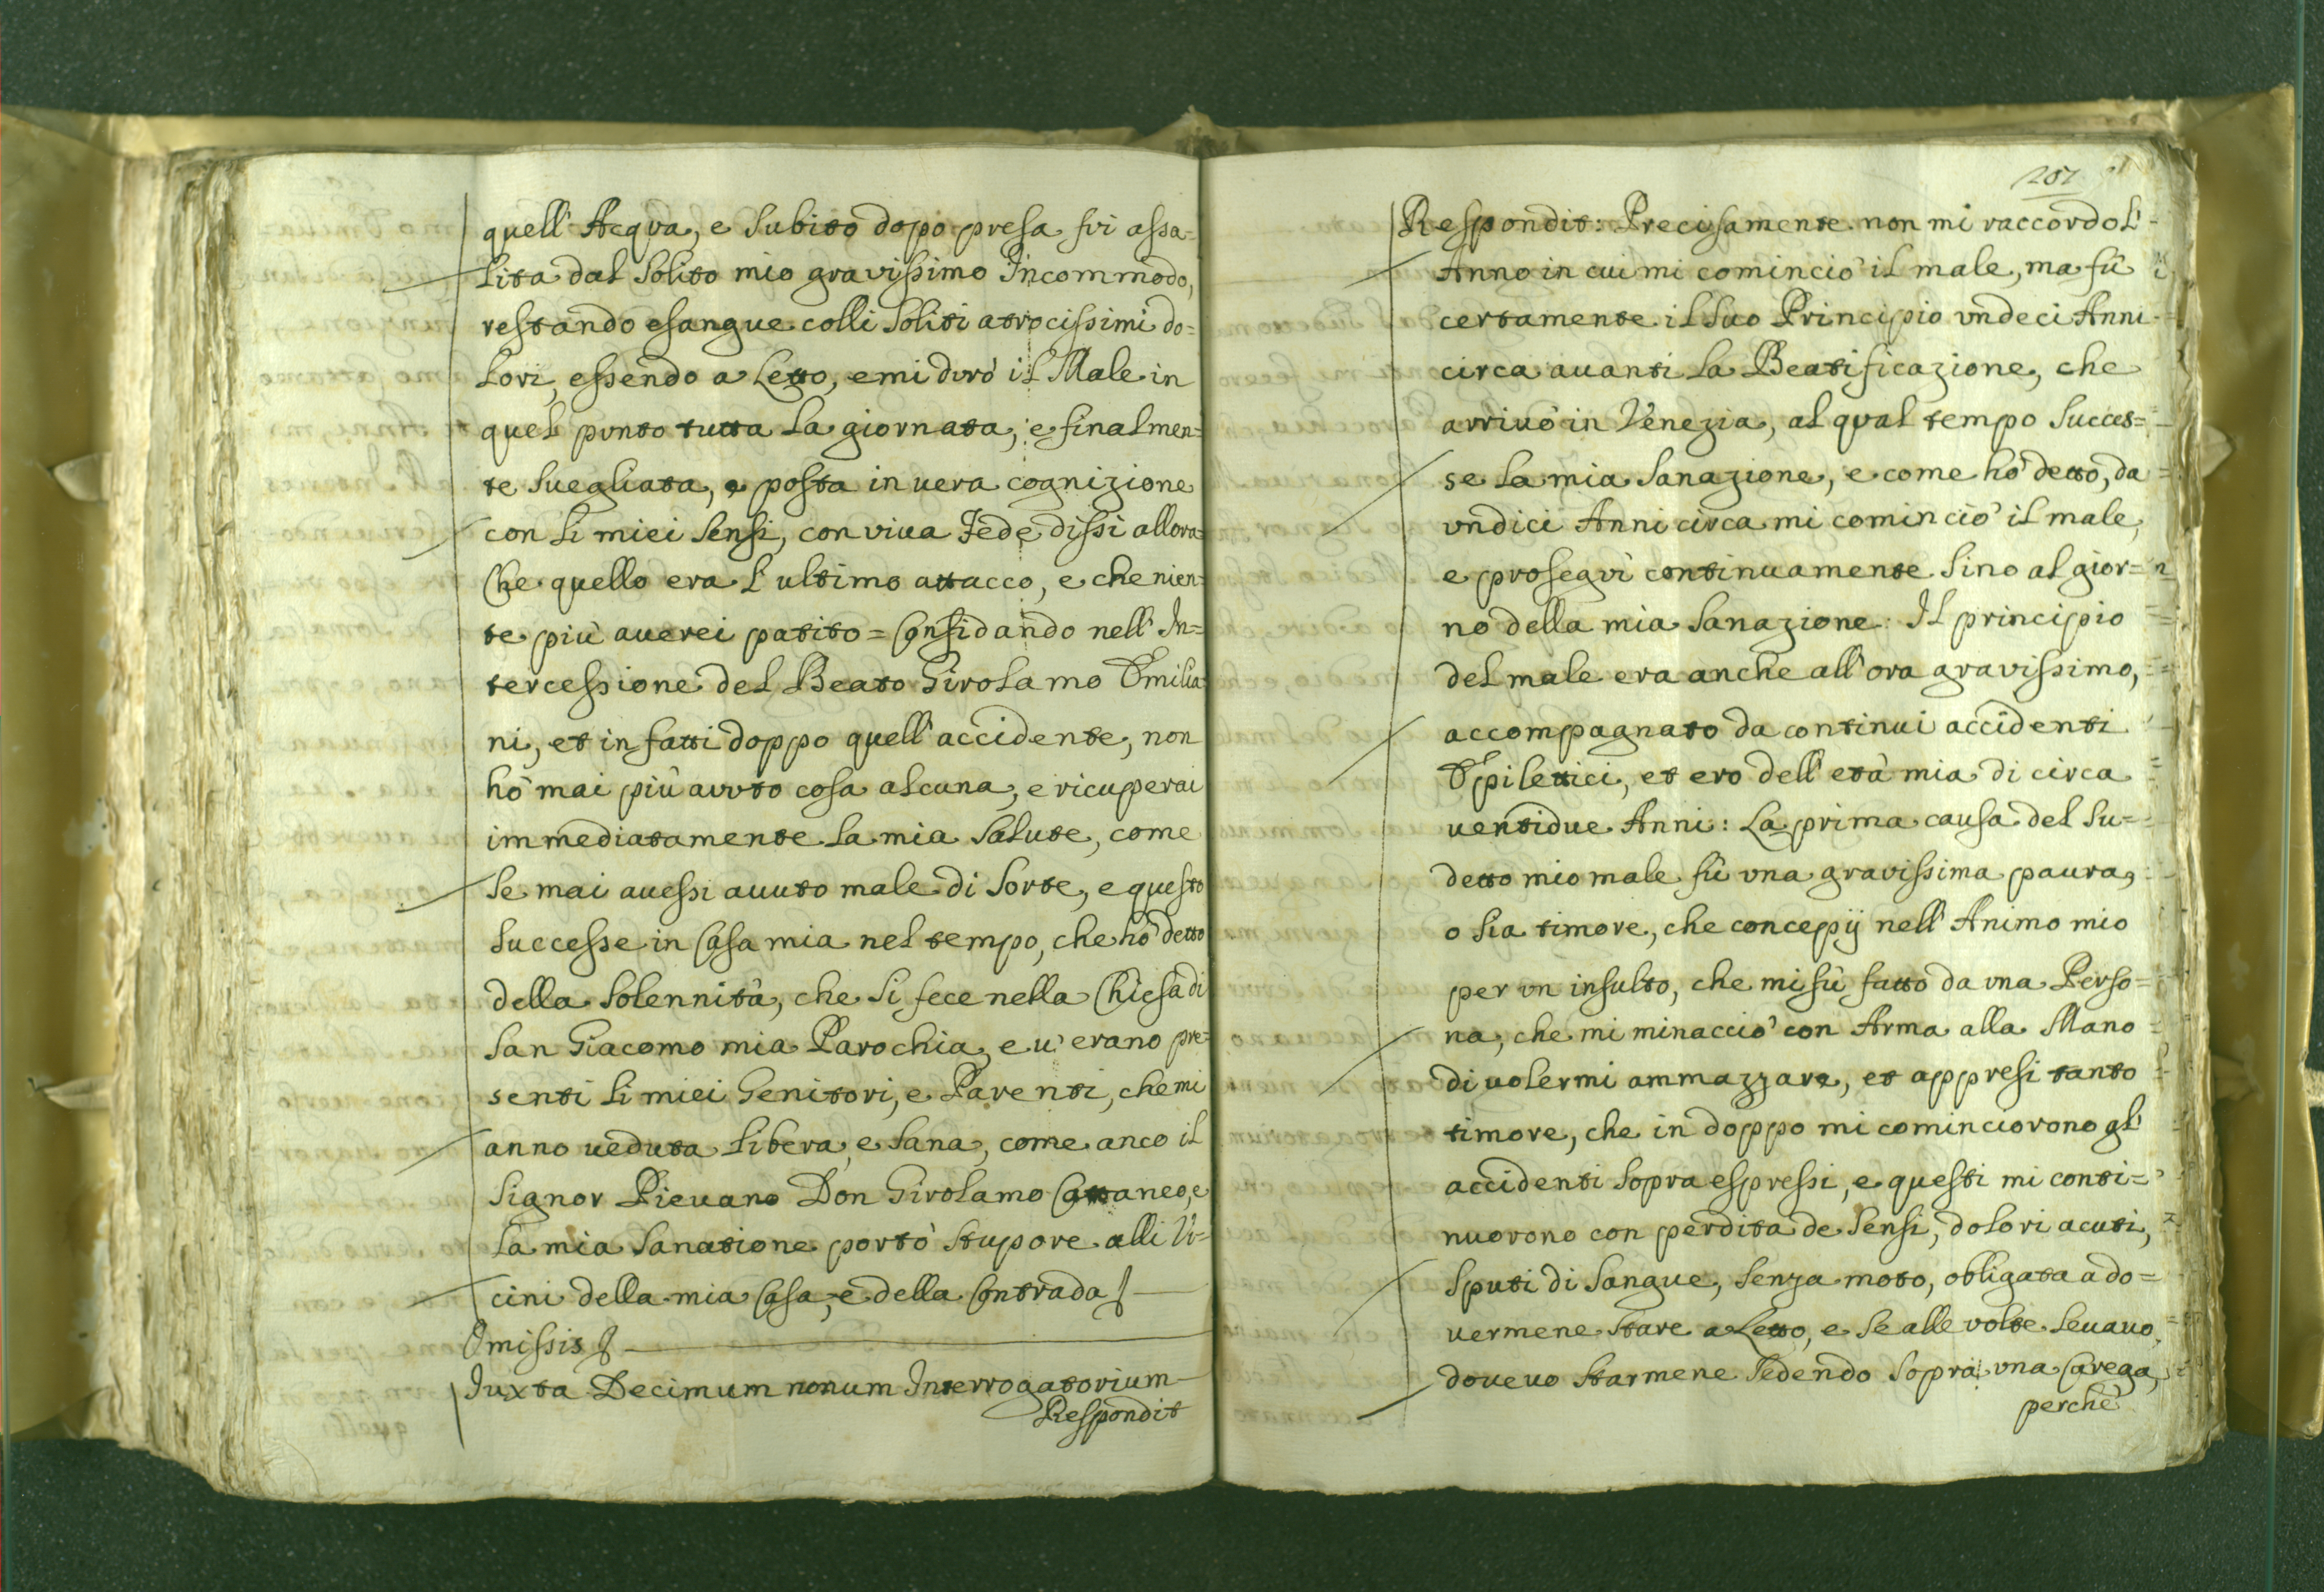 quell' Acqua, e subito dopo presa fui assa=
lita dal solito mio gravissimo Incommodo,
restando esangue colli soliti atrocissimi do=
lori, essendo a Letto, e mi durò il Male in
quel punto tutta la giornata, e finalmen=
te suegliata, e posta in uera cognizione
con li miei sensi, con viua Fede dissi allora
Che quello era l'ultimo attacco, e che nien=
te più auerei patito = Confidando nell' In=
tercessione del Beato Girolamo Emilia=
ni, et in fatti doppo quell' accidente, non
hò mai più avuto cosa alcuna, e ricuperai
immediatamente la mia salute, come
se mai auessi auuto male di sorte, e questo
successe in Casa mia nel tempo, che hò detto
della solennità, che si fece nella Chiesa di
San Giacomo mia Parochia, e u' erano pre=
senti li miei Genitori, e Parenti, che mi
anno ueduta libera, e sana, come anco il
Signor Pieuano Don Girolamo Cattaneo, e
la mia sanatione portò stupore alli Vi=
cini della mia Casa, e della Contrada
Omissis
Juxta Decimum nonum Interrogatorium
Respondit
207
Respondit: Precisamente non mi raccordo l'
Anno in cui mi cominciò il male, ma fù
certamente il suo Principio undeci Anni
circa auanti la Beatificazione, che
arriuò in Venezia, al qual tempo succes=
se la mia sanazione, e come hò detto, da
vndici Anni circa mi cominciò il male,
e proseguì continuamente sino al gior=
no della mia sanazione. Il principio
del male era anche all'ora gravissimo,
accompagnato da continui accidenti
Epilettici, et ero dell' età mia di circa
uentidue Anni: La prima causa del su=
detto mio male fù vna gravissima paura,
o sia timore, che concepij nell' Animo mio
per vn insulto, che mi fù fatto da vna Perso=
na, che mi minacciò con Arma alla Mano
di uolermi ammazzare, et appresi tanto
timore, che in doppo mi cominciorono gl'
accidenti sopra espressi, e questi mi conti=
nuorono con perdita de sensi, dolori acuti,
sputi di sangue, senza moto, obligata a do=
uermene stare a Letto, e se alle volte leuauo,
doueuo starmene sedendo sopra vna Carega,
perchè